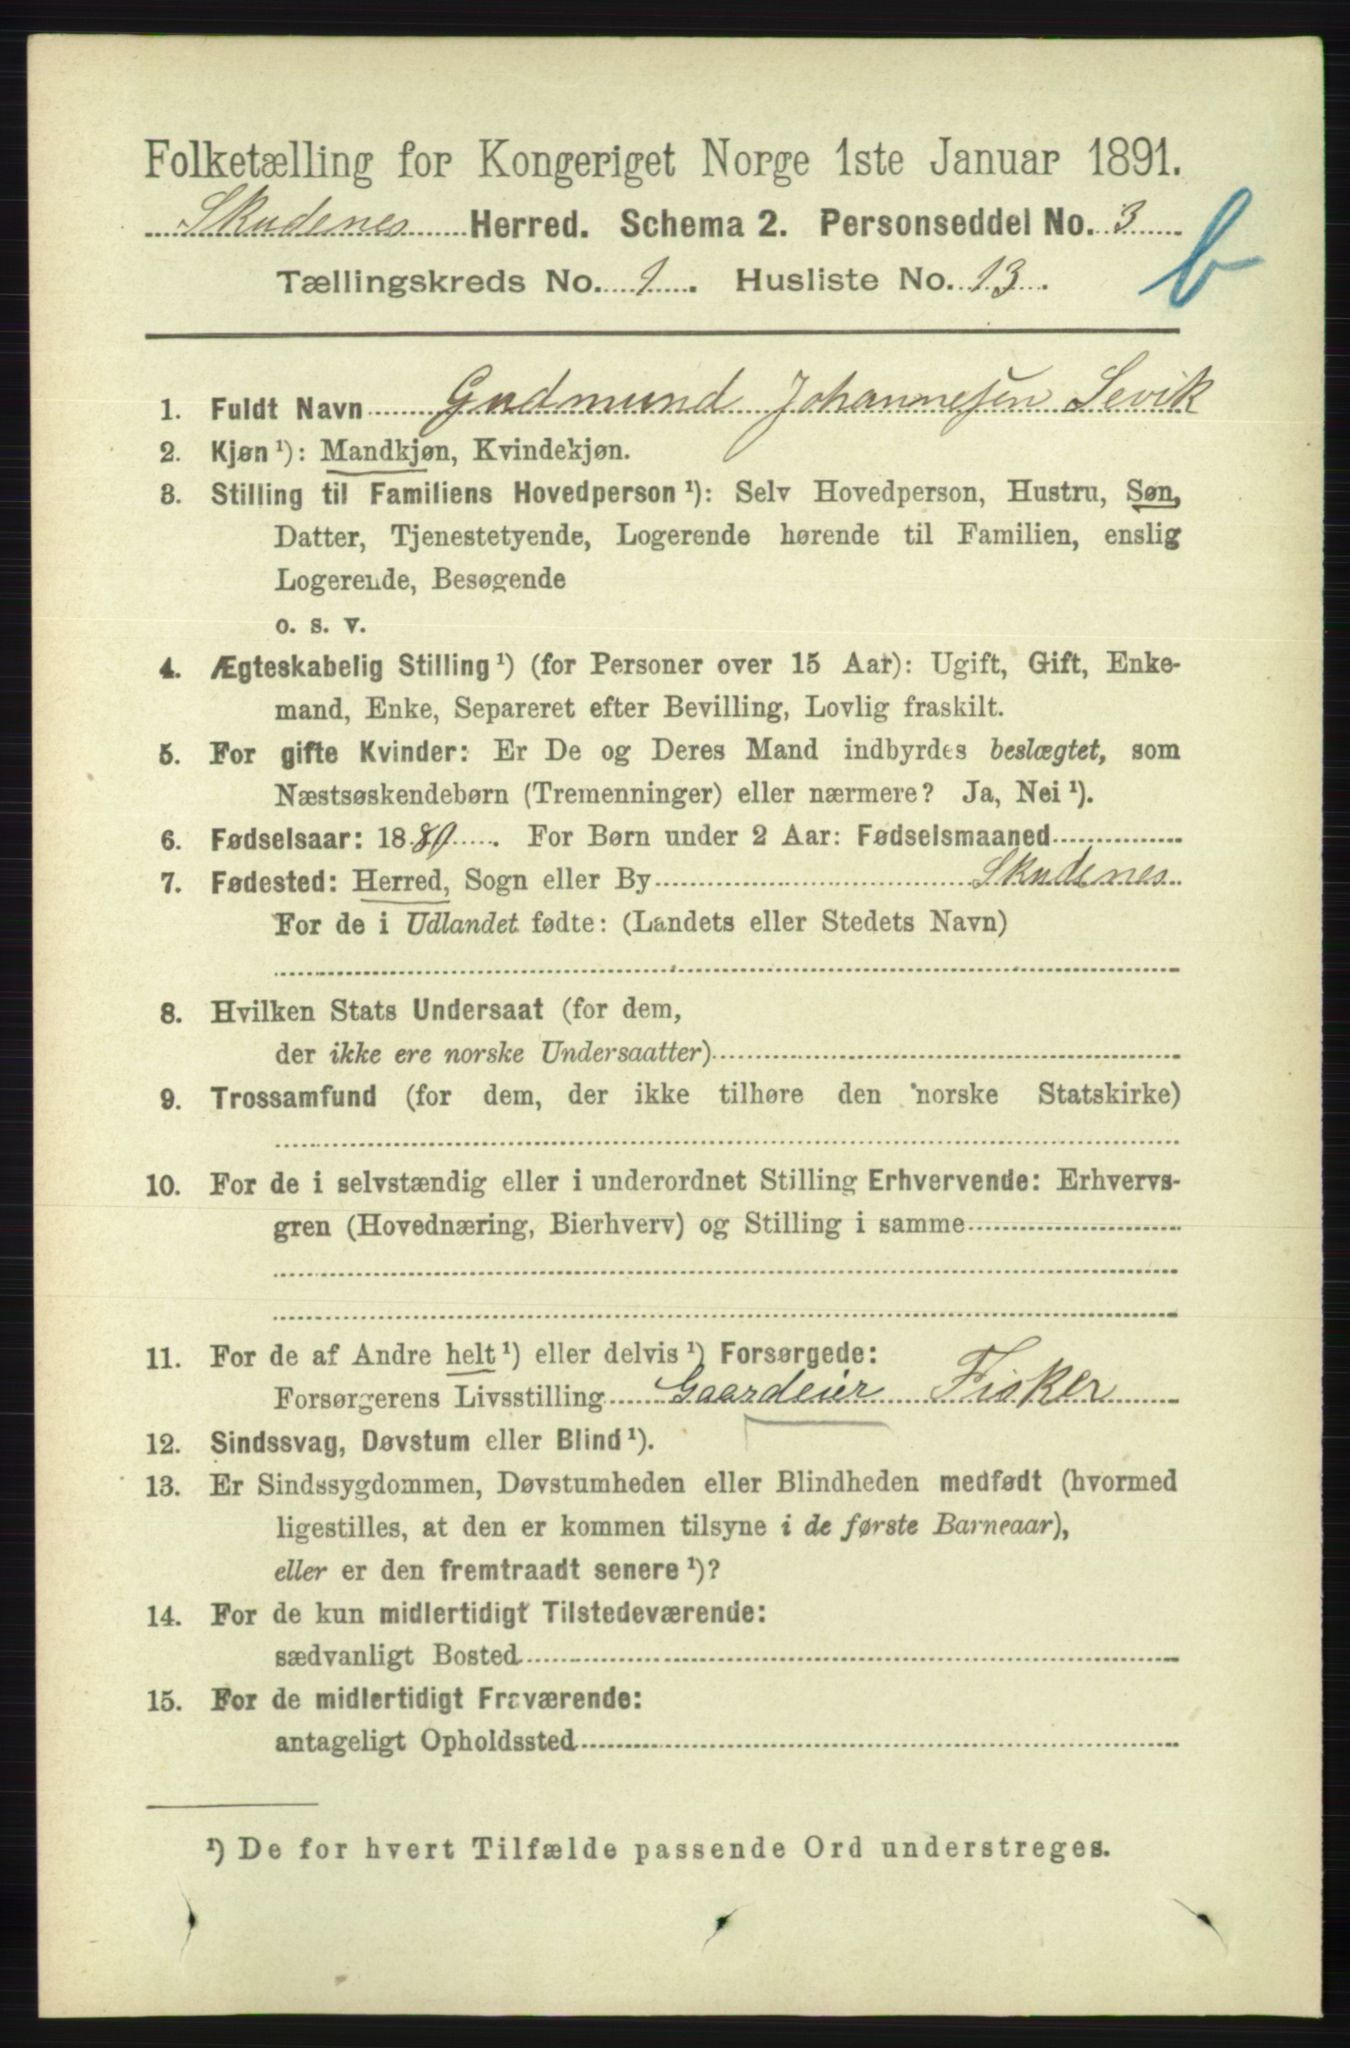 Folketælling for Kongeriget Norge 1ste Januar 1891.
Skudenes Herred. Schema 2. Personseddel No. 3
b
Tællingskreds No. 1. Husliste No. 13.
1. Fuldt Navn Gudmund Johannesen Sevik
2. Kjøn ¹): Mandkjøn, Kvindekjøn.
3. Stilling til Familiens Hovedperson ¹): Selv Hovedperson, Hustru, Søn,
Datter, Tjenestetyende, Logerende hørende til Familien, enslig
Logerende, Besøgende
o. s. v.
4. Ægteskabelig Stilling ¹) (for Personer over 15 Aar): Ugift, Gift, Enke-
mand, Enke, Separeret efter Bevilling, Lovlig fraskilt.
5. For gifte Kvinder: Er De og Deres Mand indbyrdes beslægtet, som
Næstsøskendebørn (Tremenninger) eller nærmere? Ja, Nei ¹).
6. Fødselsaar: 1880. For Børn under 2 Aar: Fødselsmaaned
7. Fødested: Herred, Sogn eller By Skudenes
For de i Udlandet fødte: (Landets eller Stedets Navn)
8. Hvilken Stats Undersaat (for dem,
der ikke ere norske Undersaatter)
9. Trossamfund (for dem, der ikke tilhøre den norske Statskirke)
10. For de i selvstændig eller i underordnet Stilling Erhvervende: Erhvervs-
gren (Hovednæring, Bierhverv) og Stilling i samme
11. For de af Andre helt ¹) eller delvis ¹) Forsørgede:
Forsørgerens Livsstilling Gaardeier Fisker
12. Sindssvag, Døvstum eller Blind ¹).
13. Er Sindssygdommen, Døvstumheden eller Blindheden medfødt (hvormed
ligestilles, at den er kommen tilsyne i de første Barneaar),
eller er den fremtraadt senere ¹)?
14. For de kun midlertidigt Tilstedeværende:
sædvanligt Bosted
15. For de midlertidigt Fraværende:
antageligt Opholdssted
¹) De for hvert Tilfælde passende Ord understreges.